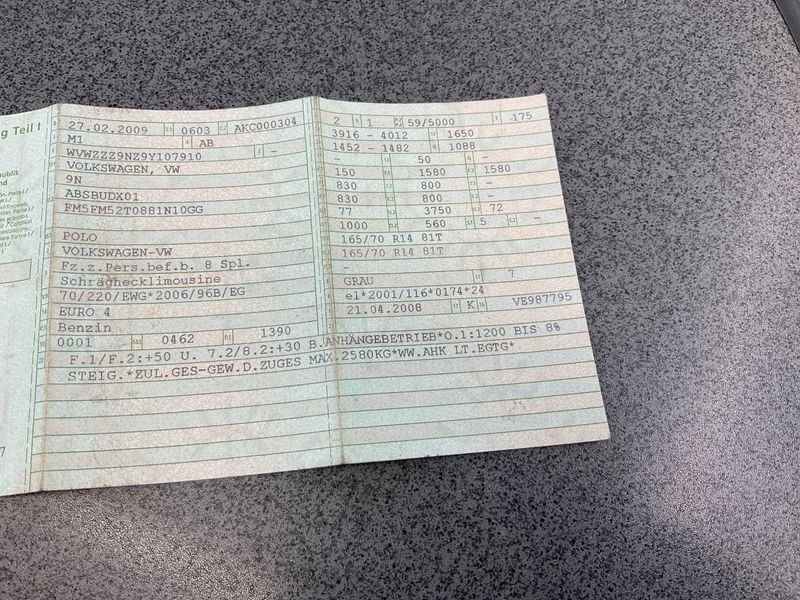 g Teil I
27.02.2009 0603 AKC000304 2 1 59/5000 175
M1 AB 3916 - 4012 1650
WVWZZZ9NZ9Y107910 - 1452 - 1482 1088
VOLKSWAGEN, VW - 50 -
9N 150 1580 1580
ABSBUDX01 830 800 -
FM5FM52T0881N10GG 830 800 -
77 3750 72
1000 560 5 -
POLO 165/70 R14 81T
VOLKSWAGEN-VW 165/70 R14 81T
Fz.z.Pers.bef.b. 8 Spl. -
Schräghecklimousine GRAU 7
70/220/EWG*2006/96B/EG e1*2001/116*0174*24
EURO 4 21.04.2008 K VE987795
Benzin
0001 0462 1390
F.1/F.2:+50 U. 7.2/8.2:+30 B.ANHÄNGEBETRIEB*O.1:1200 BIS 8%
STEIG.*ZUL.GES-GEW.D.ZUGES MAX.2580KG*WW.AHK LT.EGTG*